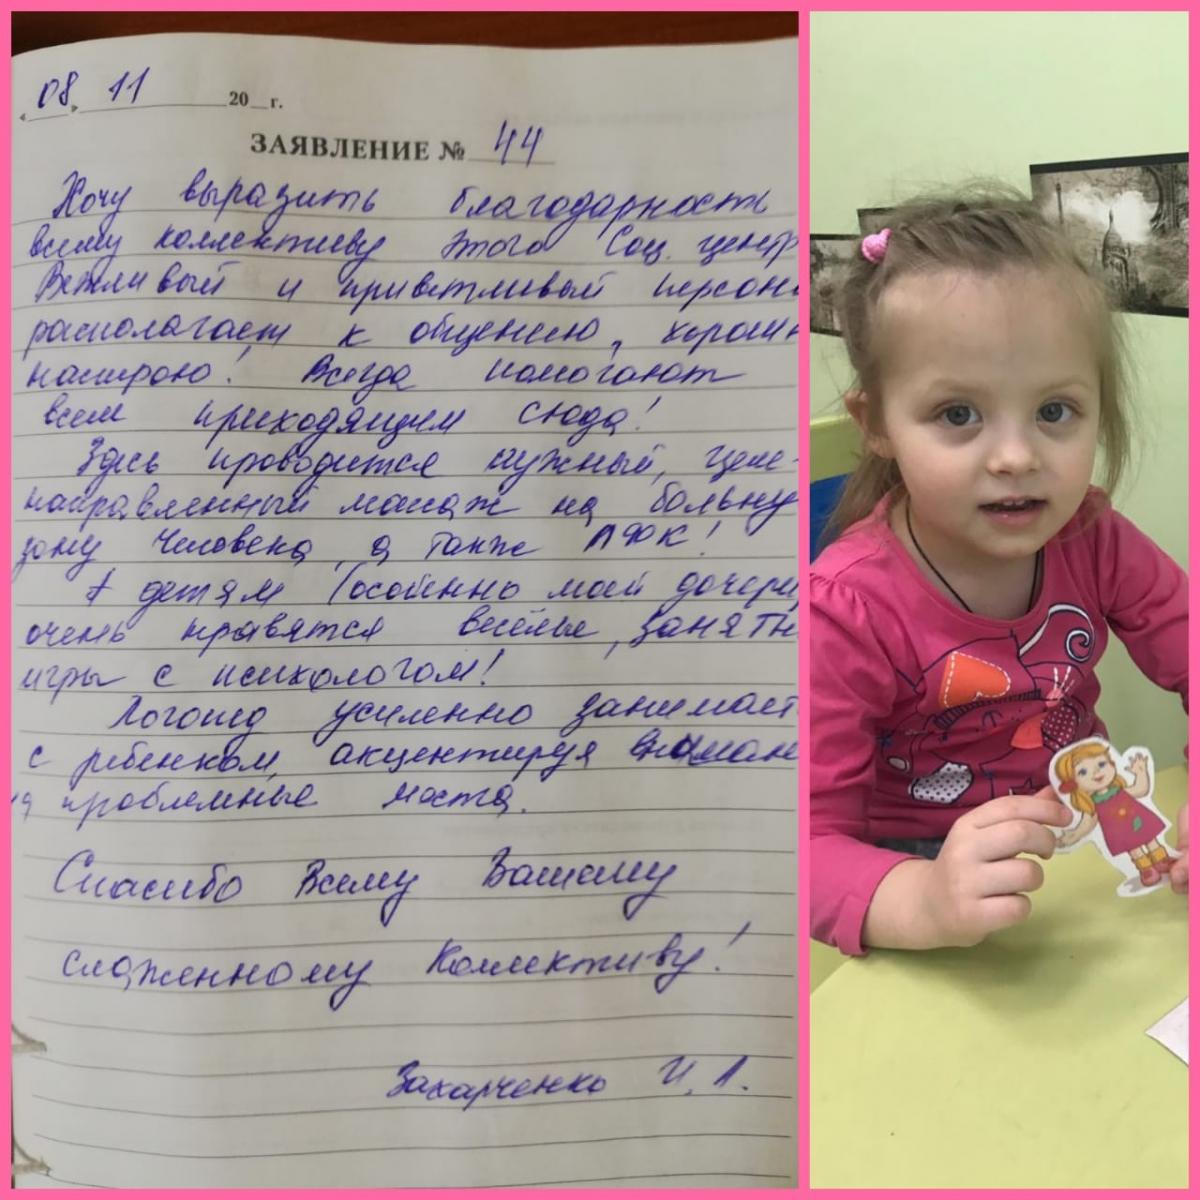 « 08 » 11 20__г.
ЗАЯВЛЕНИЕ № 44
Хочу выразить благодарность
всему коллективу этого Соц. центр
Вежливый и приветливый персон
располагает к общению, хорош
настрою! Всегда помогают
всем приходящим сюда!
Здесь проводится нужный, целе-
направленный массаж на больну
зону Человека, а также ЛФК!
А детям (особенно моей дочери
очень нравятся весёлые, занятн
игры с психологом!
Логопед усиленно занимает
с ребенком, акцентируя вниман
на проблемные места.
Спасибо Всему Вашему
слаженному Коллективу!
Захарченко И. Л.